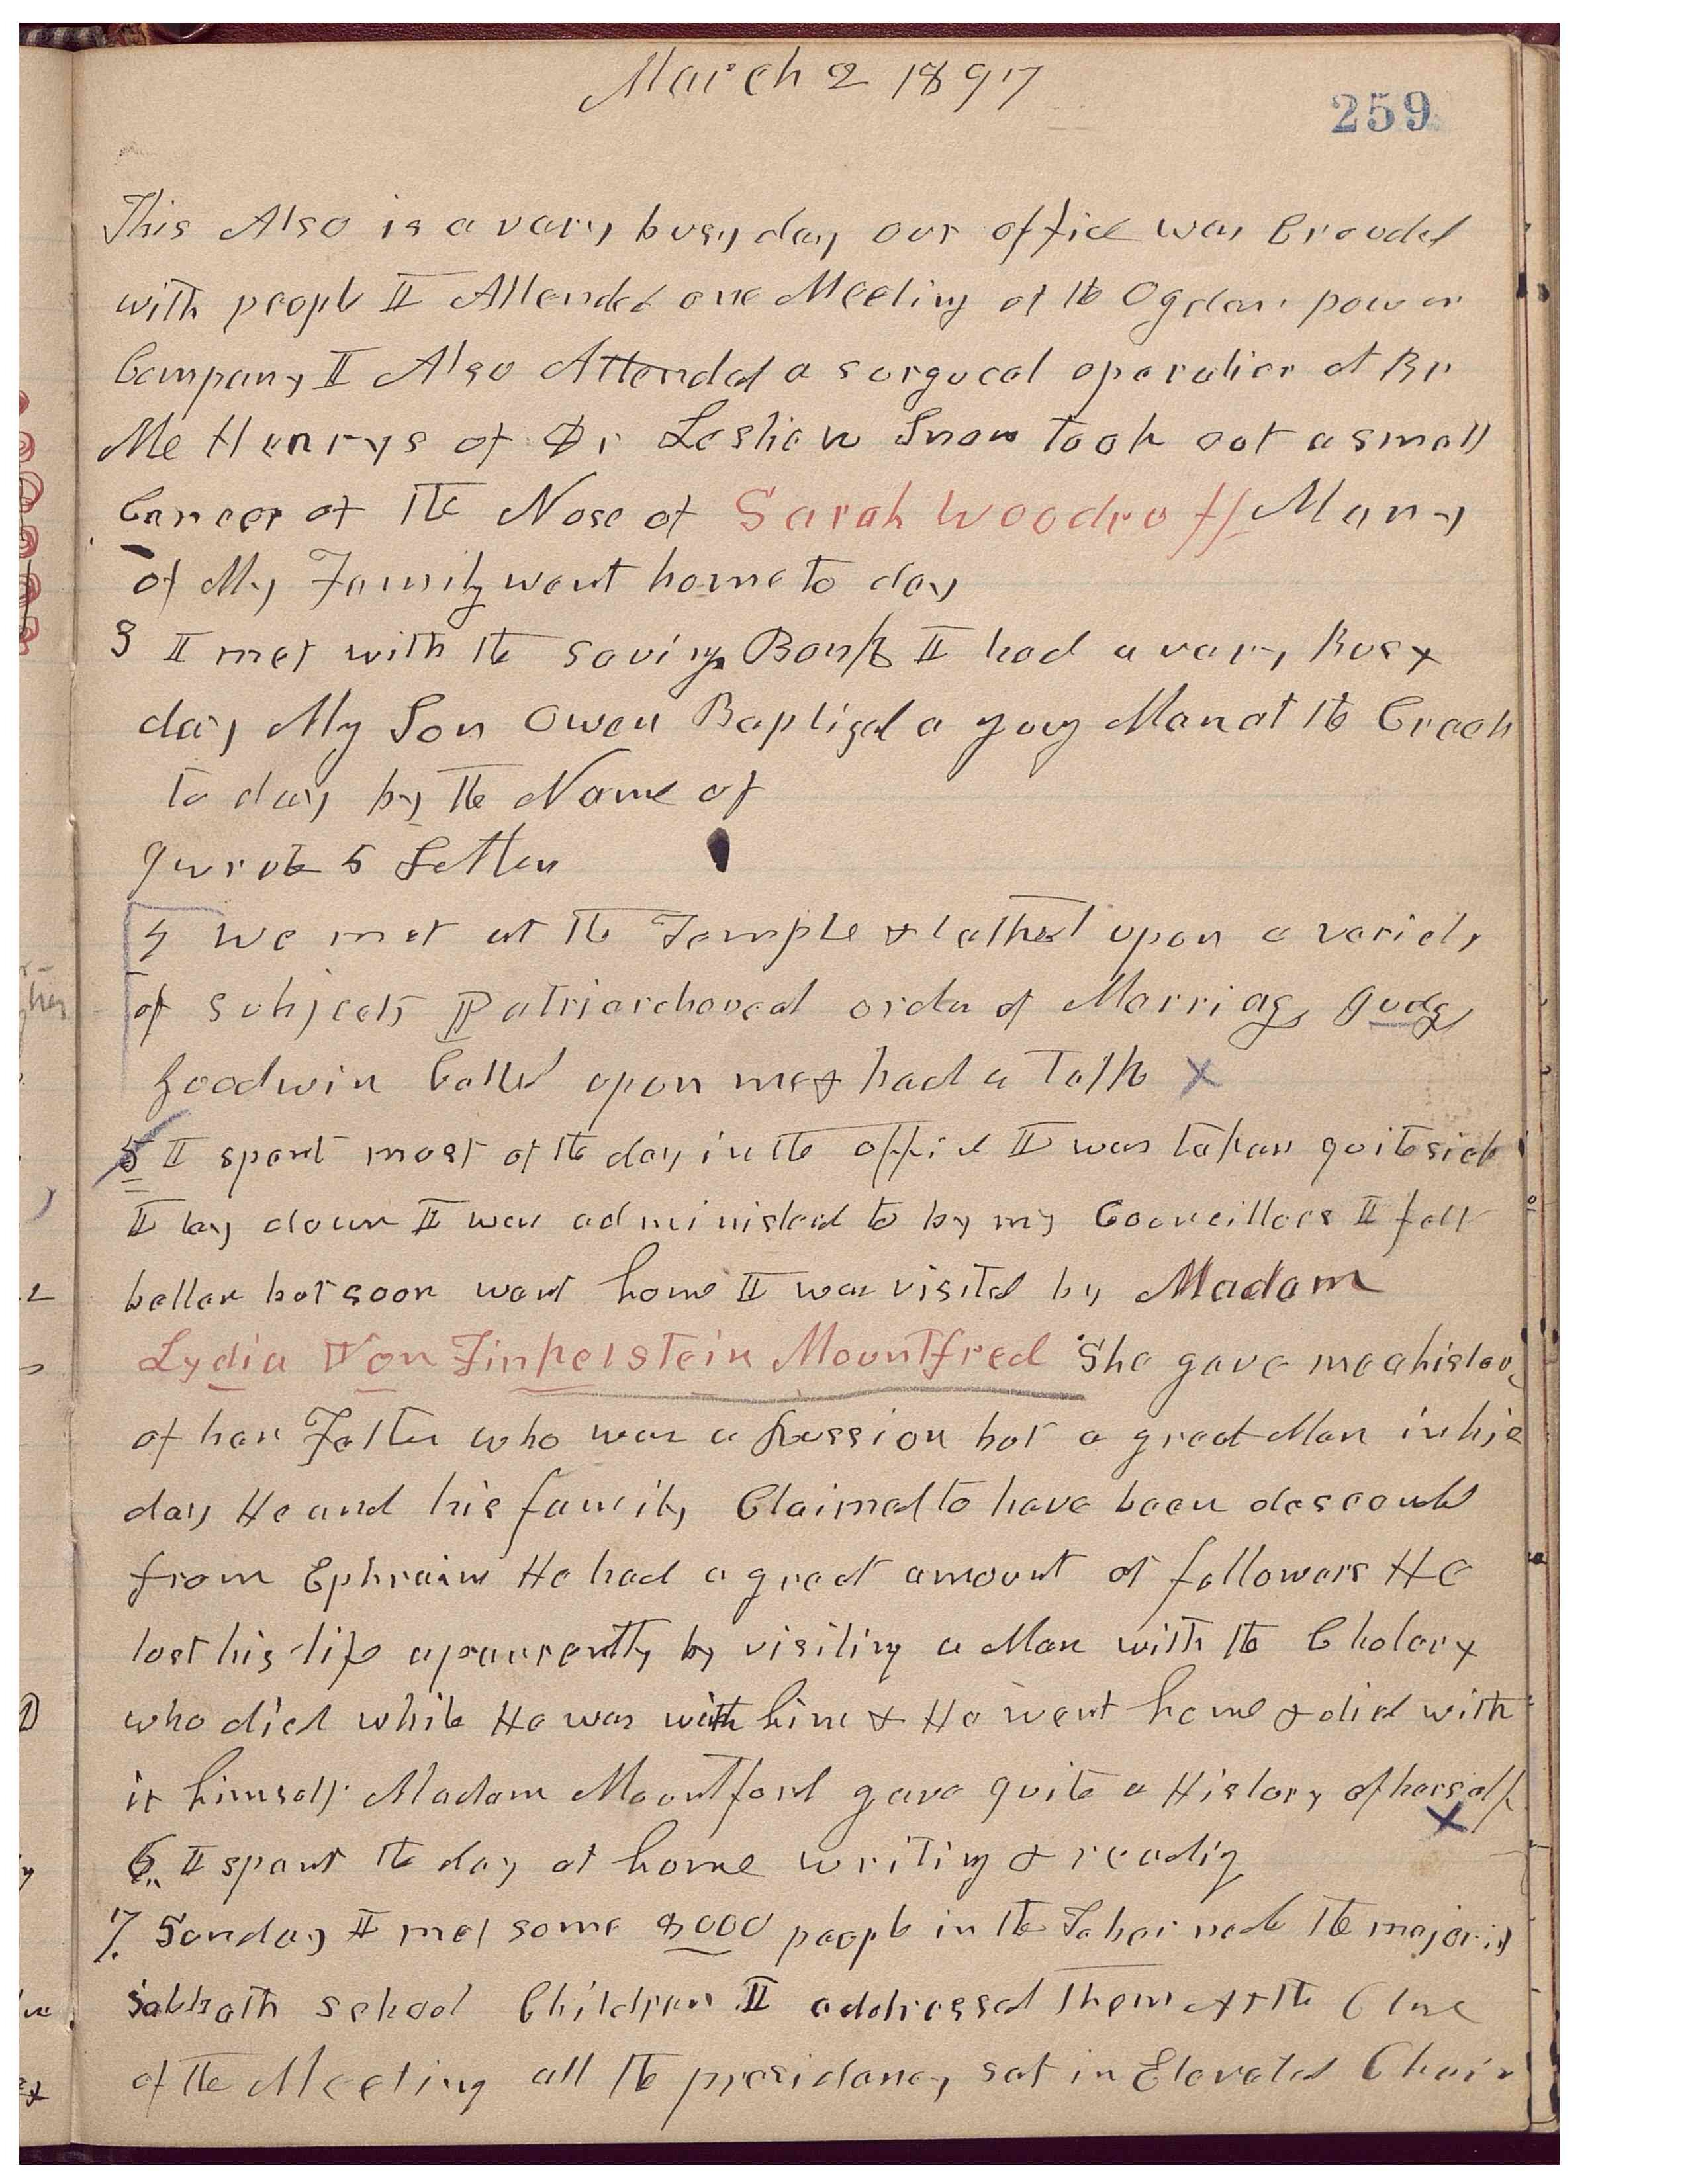 March 2 1897
259
This Also is a vary busy day our office was Crouded
with people I Attended one Meeting of the Ogden power
Company I Also Attended a surgucal operation at Br
Mc Henrys of Dr Leslie W Snow took out a small
Cancer of the Nose of Sarah Woodruff Many
of My Family went home to day
3 I met with the Savings Bank I had a vary Busy
day My Son Owen Baptized a young Man at the Creek
to day by the Name of
I wrote 5 Letters
4 We met at the Temple & talked upon a variety
of subjects Patriarchaal order of Marriage Judge
Goodwin Called upon me & had a Talk X
5 I spent most of the day in the office I was taken quite sick
I lay down I was administed to by my Councillors I felt
better but soon went home I was visited by Madam
Lydia Von Finkelstein Mountfred She gave me a history
of her Father who was a Russian but a great Man in his
day He and his family Claimed to have been descends
from Ephraim He had a great amount of followers He
lost his life aparently by visiting a Man with the Cholery
who died while He was with him & He went home & died with
it himself Madam Mountford gave quite a History of herself
X
6 I spent the day at home writing & reading
7 Sunday I met some 8000 people in the Tabernacle the majority
Sabbath school Children I addressed them At the Close
of the Meeting all the presidency sat in Elevated Chair